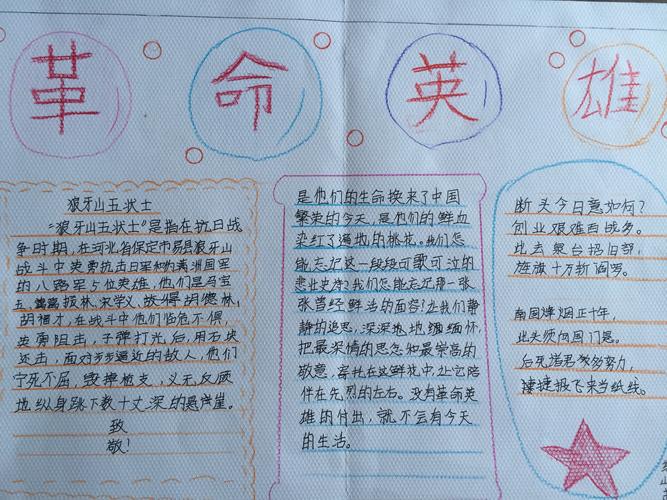 革命英雄
狼牙山五状士
“狼牙山五状士”是指在抗日战
争时期,在河北省保定市易县狼牙山
战斗中英勇抗击日军和伪满洲国军
的八路军5位英雄,他们是马宝
五、葛振林、宋学义、胡德林、
胡福才,在战斗中他们临危不惧,
英勇阻击,子弹打光后,用石块
还击,面对步步逼近的敌人,他们
宁死不屈,毁掉枪支,义无反顾
地纵身跳下数十丈深的悬崖。
致
敬!
是他们的生命换来了中国
繁荣的今天,是他们的鲜血
染红了遍地的桃花。我们怎
能忘记这一段段可歌可泣的
悲壮史诗?我们怎能忘记那一张
张曾经鲜活的面容?在我们静
静的追思,深深地缅怀,
把最深情的思念和最崇高的
敬意,寄托在这鲜花中,让它陪
伴在先烈的左右。没有革命英
雄的付出,就不会有今天
的生活。
断头今日意如何?
创业艰难百战多。
此去泉台招旧部,
旌旗十万斩阎罗。
南国烽烟正十年,
此头须向国门悬。
后死诸君多努力,
捷报飞来当纸线。